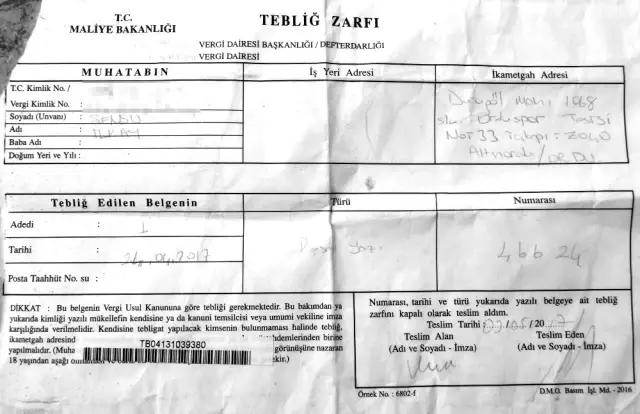 T.C.
MALİYE BAKANLIĞI
TEBLİĞ ZARFI
VERGİ DAİRESİ BAŞKANLIĞI / DEFTERDARLIĞI
VERGİ DAİRESİ
MUHATABIN
İş Yeri Adresi
İkametgah Adresi
T.C. Kimlik No. /
Vergi Kimlik No. :
Soyadı (Unvanı) : ŞENSU
Adı : İLKAY
Baba Adı :
Doğum Yeri ve Yılı :
1068
Tesisi
No: 33
Altınordu / ORDU
Tebliğ Edilen Belgenin
Türü
Numarası
Adedi : 1
Tarihi : 24.04.2017
Yazı
46624
Posta Taahhüt No. su :
DİKKAT : Bu belgenin Vergi Usul Kanununa göre tebliği gerekmektedir. Bu bakımdan ya
yukarıda kimliği yazılı mükellefin kendisine ya da kanuni temsilcisi veya umumi vekiline imza
karşılığında verilmelidir. Kendisine tebligat yapılacak kimsenin bulunmaması halinde tebliğ,
ikametgah adresind hdemlerinden birine
TB04131039380
yapılmalıdır. (Muha görünüşüne nazaran
18 yaşından aşağı
Numarası, tarihi ve türü yukarıda yazılı belgeye ait tebliğ
zarfını kapalı olarak teslim aldım.
Teslim Tarihi : /05/2017
Teslim Alan
Teslim Eden
(Adı ve Soyadı - İmza)
(Adı ve Soyadı - İmza)
Örnek No. : 6802-f
D.M.O. Basım İşl. Md. - 2016